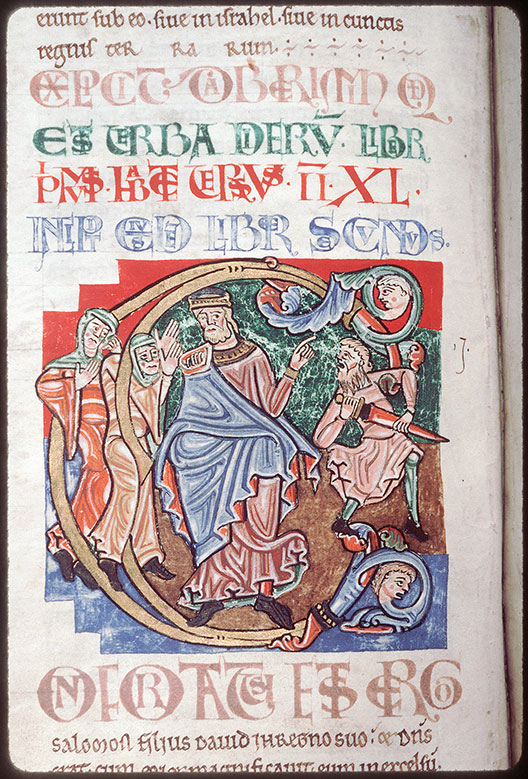 erunt sub eo. siue in israhel. siue in cunctis
regnis ter ra rum.
EXPLICIT
EST VERBA DIERV̄. LIBER
PRIMVS. HABET VERSVS. II. XL.
INCIPIT LIBER SECVNDVS.
C
ONFORTATVS EST ERGO
salomon filius dauid in regno suo. & dn̄s
erat cum eo. & magnificauit eum in excelsū.